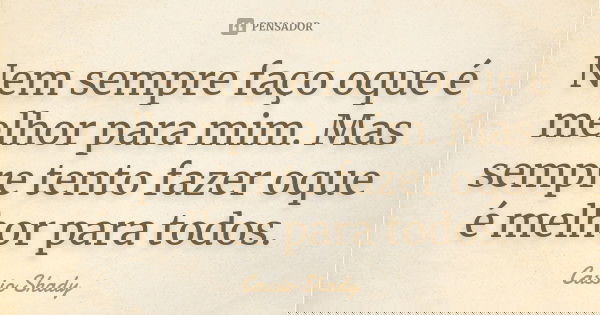 PENSADOR
Nem sempre faço oque é
melhor para mim. Mas
sempre tento fazer oque
é melhor para todos.
Cassio Shady